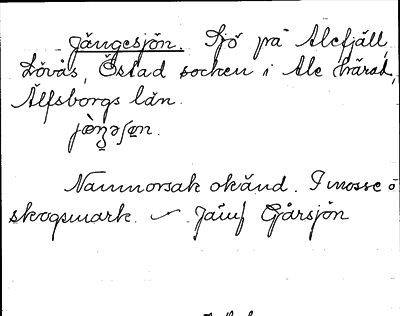 Jängesjön. Sjö på Alefjäll,
Lövås, Östad socken i Ale härad,
Älfsborgs län.
Namnorsak okänd. I mosse o
skogsmark. — Jämf Gårsjön